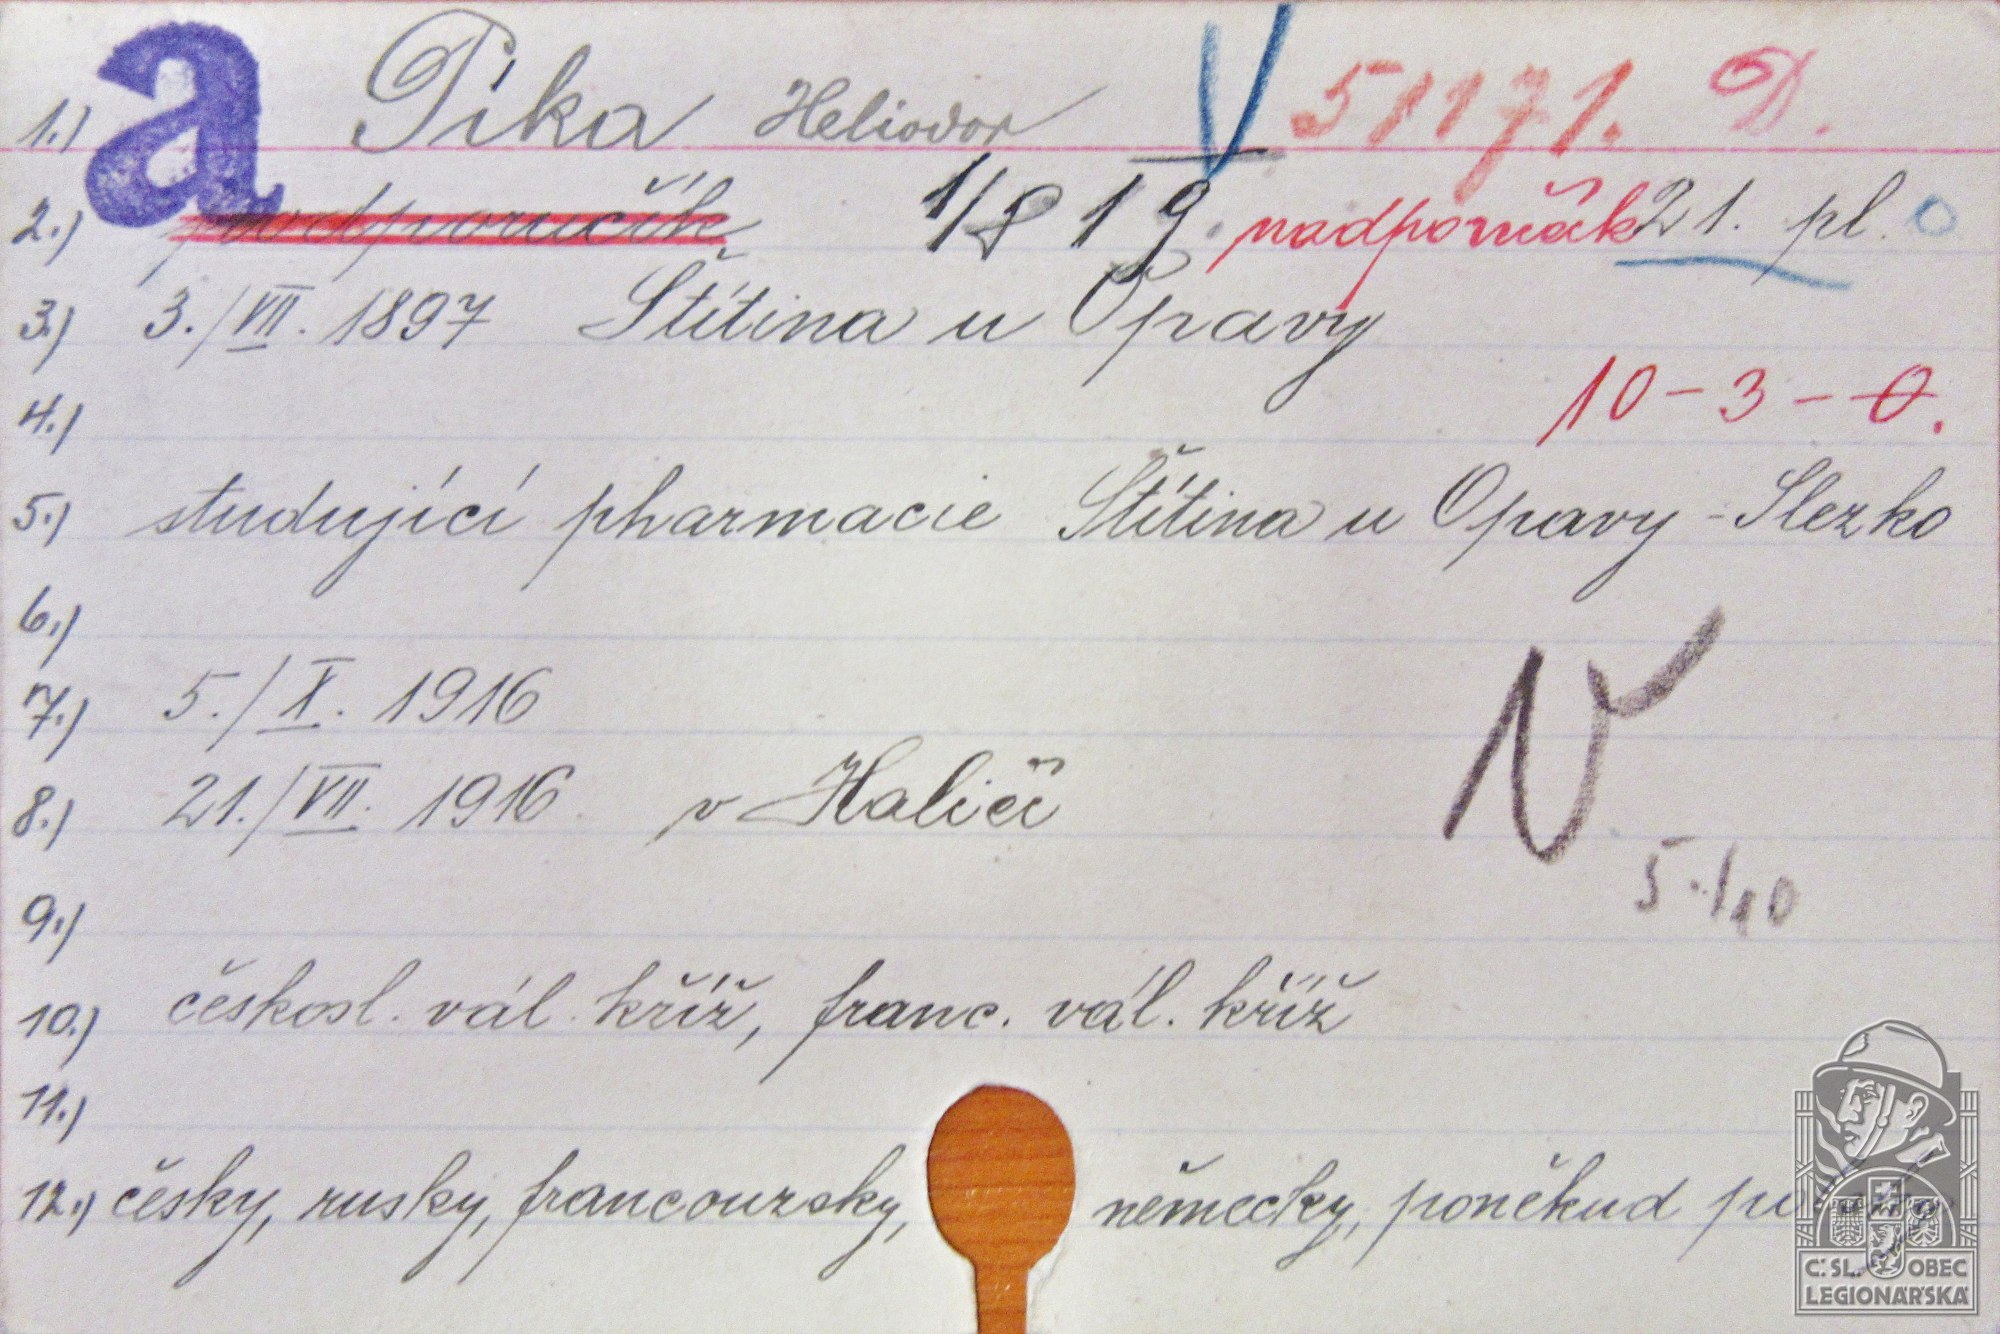 a
1.) Píka Heliodor 51171. D.
2.) podporučík 1/8 19. nadporučík 21. pl.
3.) 3./VII. 1897 Štítina u Opavy
10-3-0.
4.)
5.) studující pharmacie Štítina u Opavy - Slezko
6.)
7.) 5./X. 1916
8.) 21./VII. 1916 v Haliči
5./10
9.)
10.) českosl. vál. kříž, franc. vál. kříž
11.)
12.) česky, rusky, francouzsky, německy, poněkud
Č. SL. OBEC
LEGIONÁŘSKÁ